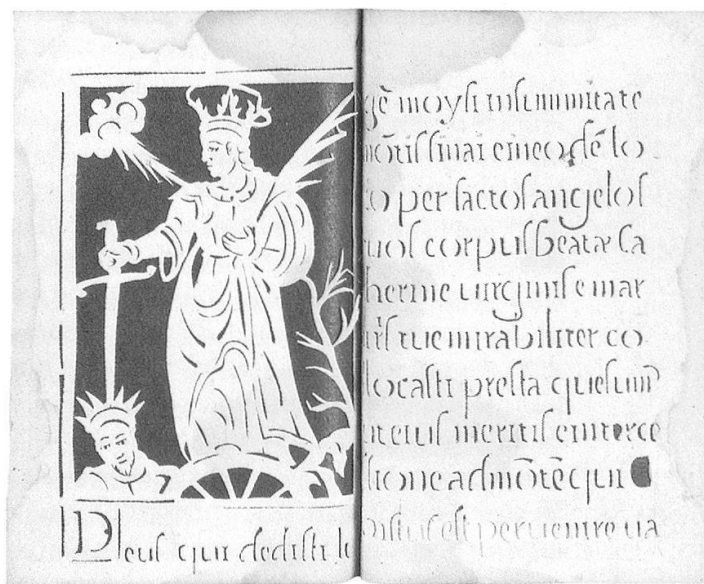 Deus qui dedisti le
gē moysi insummitate
mōtis sinai et in eodē lo
co per sāctos angelos
tuos corpus beatæ Ca
therine uirginis et mar
tiris tue mirabiliter co
locasti presta quesum⁹
ut eius meritis et interce
ssione ad mōtē qui
Χρistus est peruenire ua